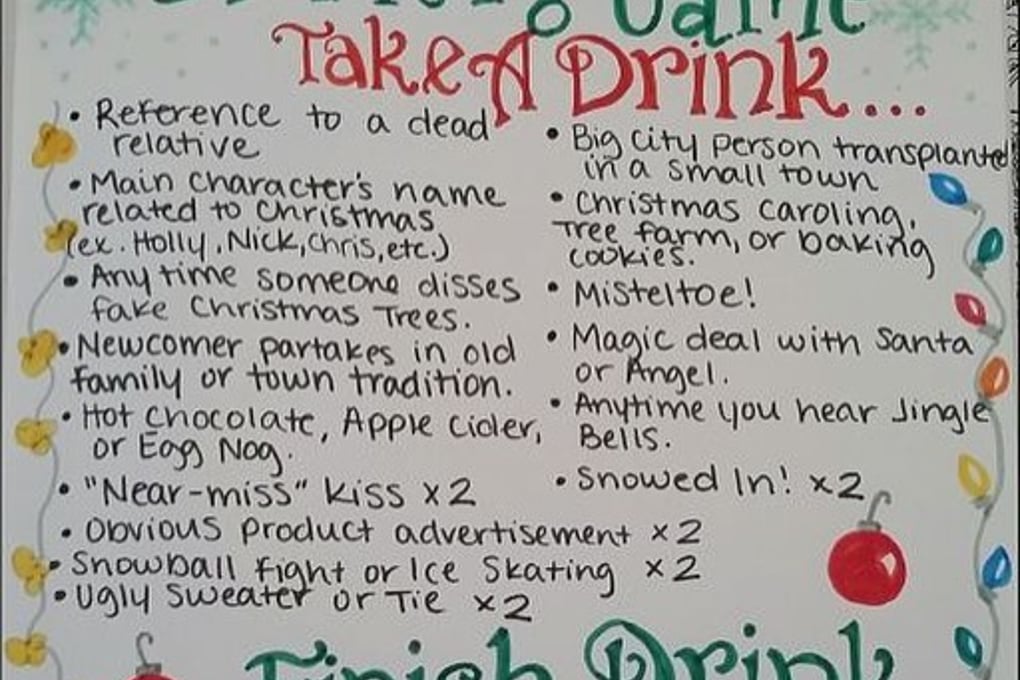 Take A Drink...
• Reference to a dead
relative
• Main character's name
related to Christmas
(ex. Holly, Nick, Chris, etc.)
• Any time someone disses
fake Christmas Trees.
• Newcomer partakes in old
family or town tradition.
• Hot Chocolate, Apple Cider,
or Egg Nog.
• "Near-miss" kiss x2
• Obvious product advertisement x2
• Snowball fight or Ice Skating x2
• Ugly Sweater or Tie x2
• Big city person transplanted
in a small town
• Christmas caroling,
Tree farm, or baking
cookies.
• Misteltoe!
• Magic deal with Santa
or Angel.
• Anytime you hear Jingle
Bells.
• Snowed In! x2
Finish Drink